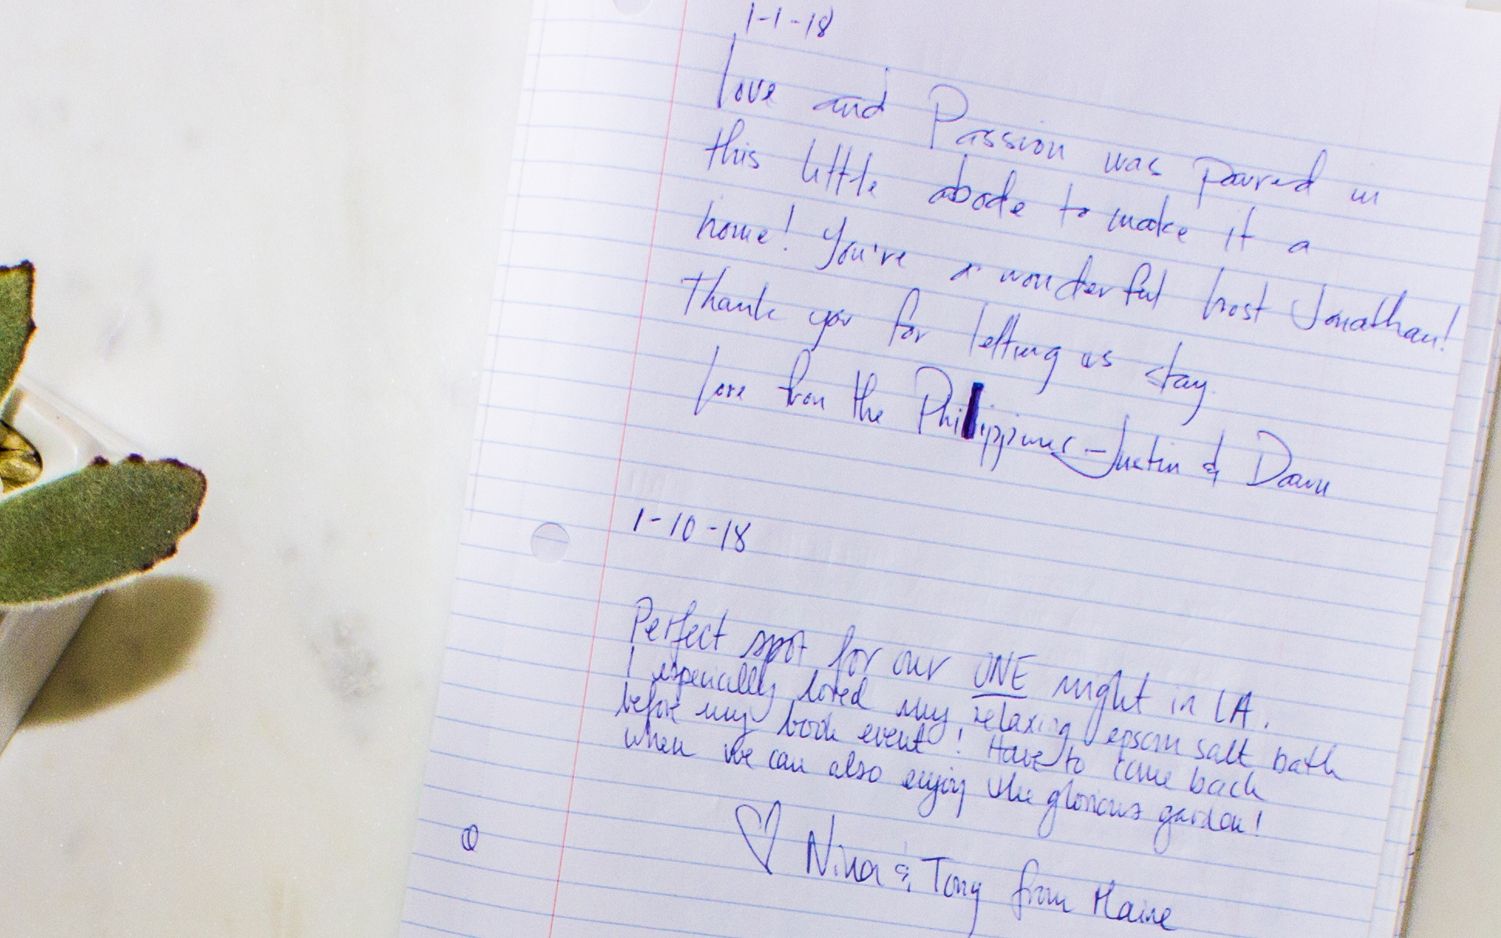 1-1-18
love and Passion was poured in
this little abode to make it a
home! You're a wonderful host Jonathan!
Thank you for letting us stay.
Love from the Philippines - Justin & Dawn
1-10-18
Perfect spot for our ONE night in LA.
I especially loved my relaxing epsom salt bath
before my book event! Have to come back
when we can also enjoy the glorious garden!
♡ Nina & Tony from Maine